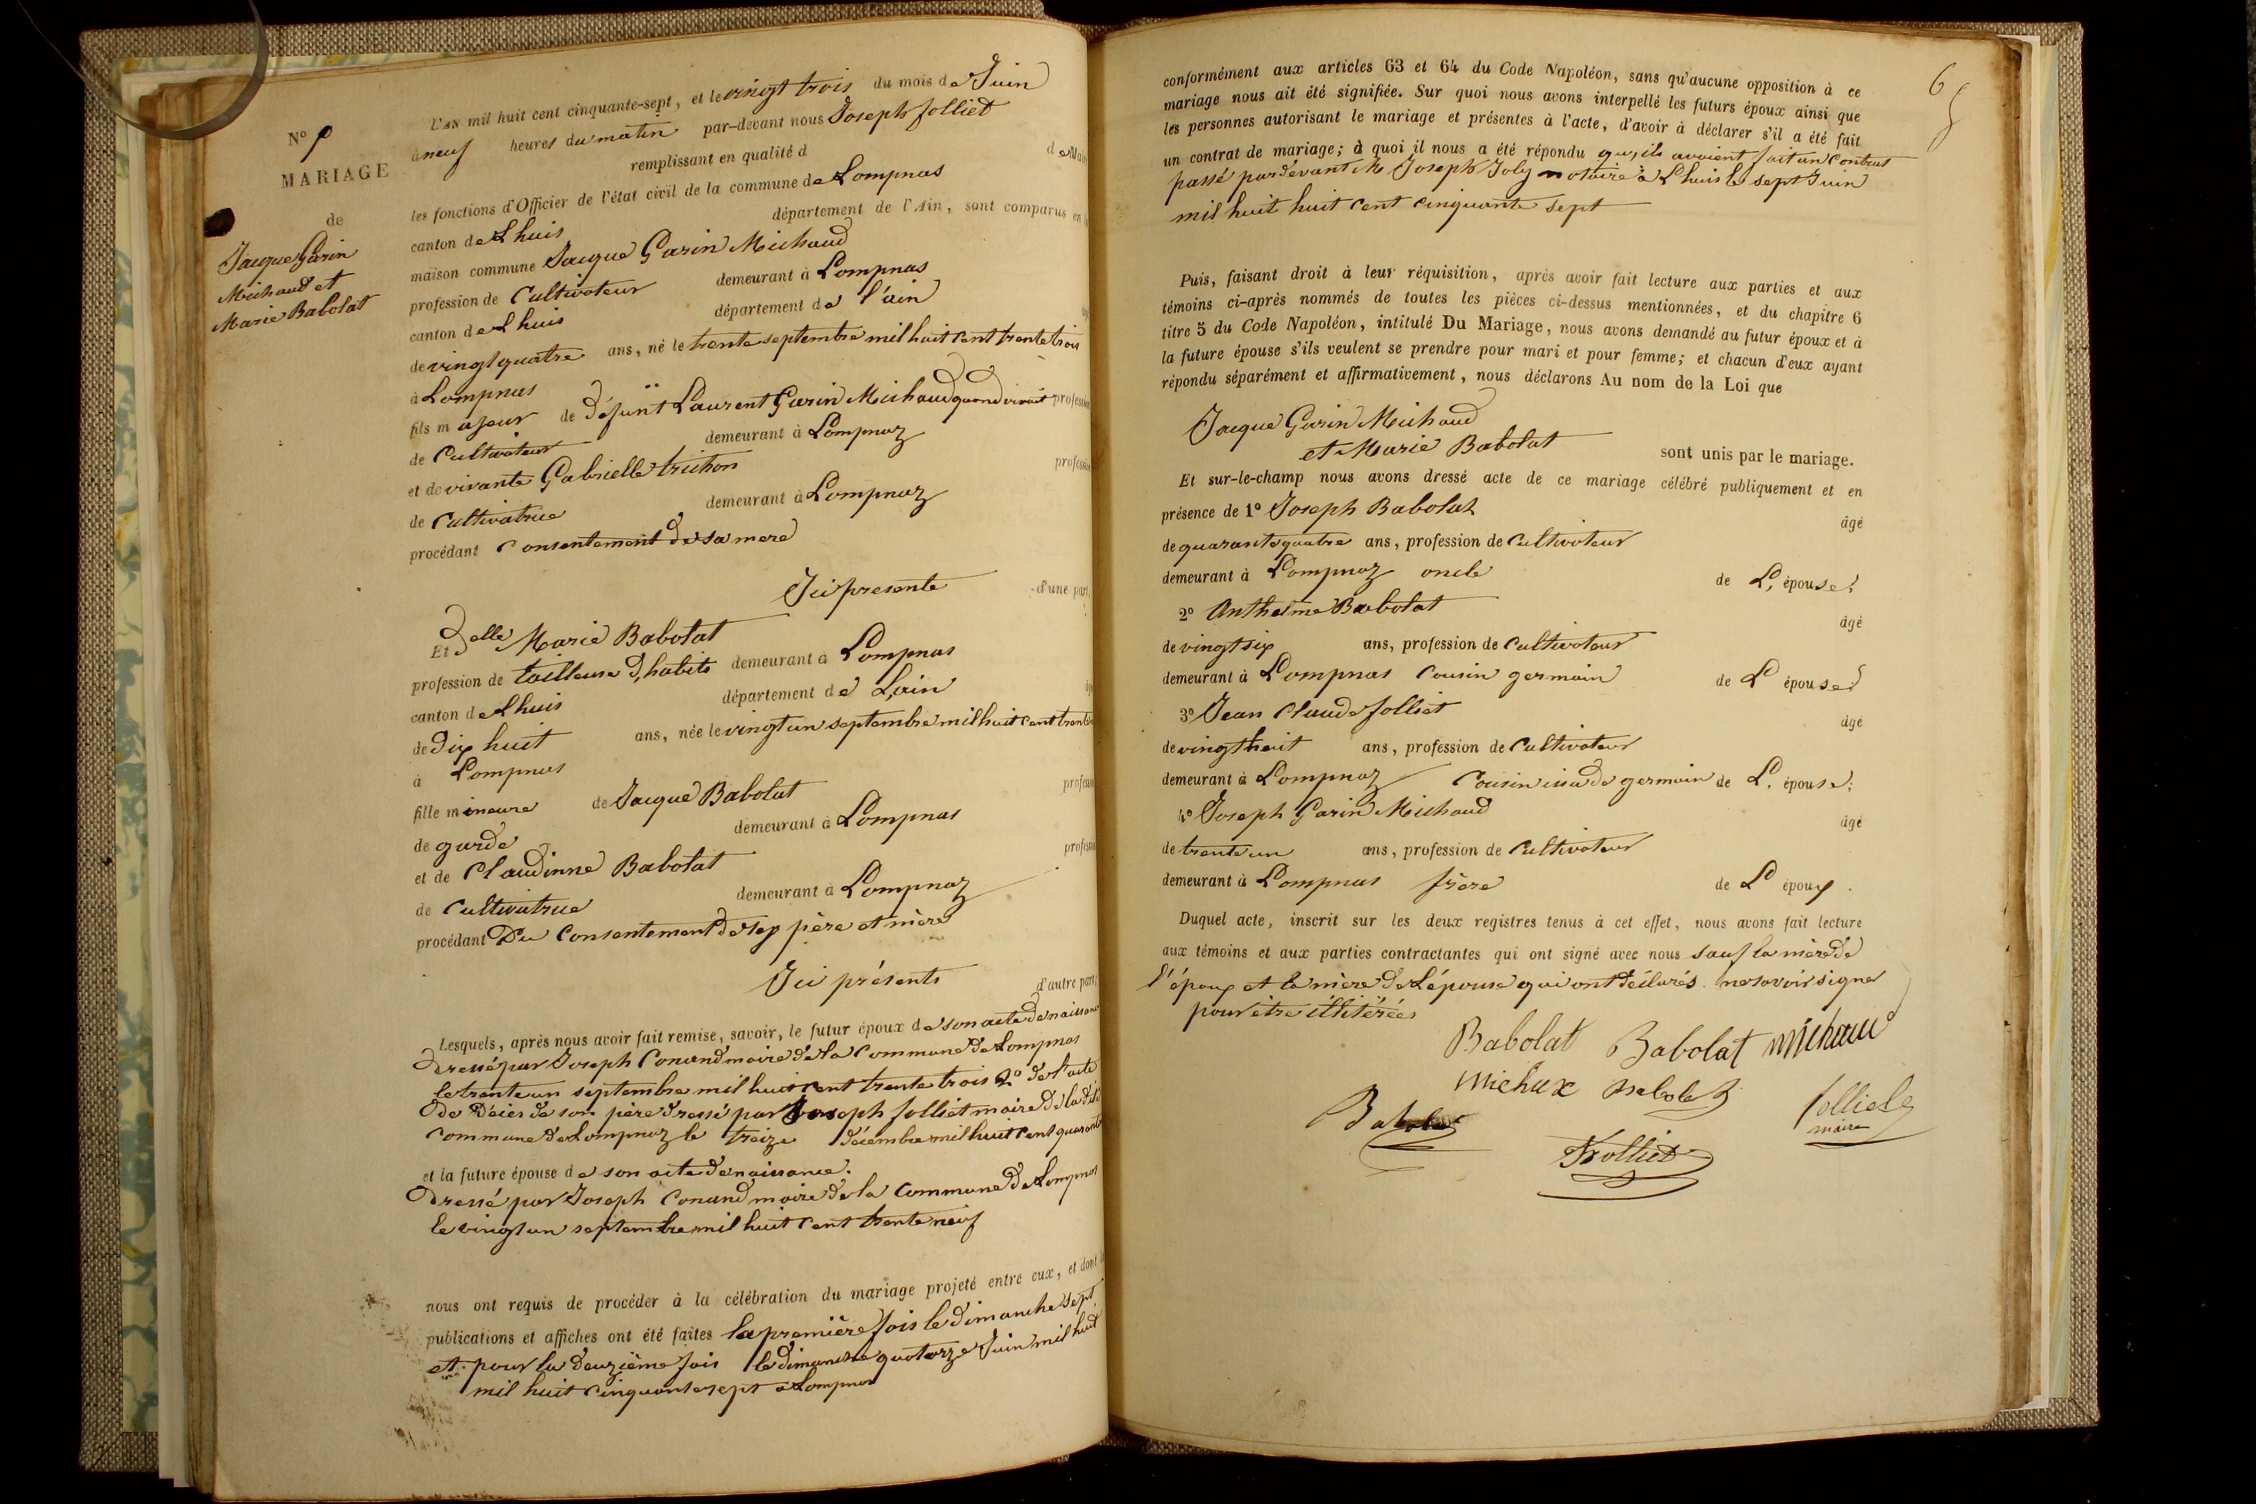 N.º
MARIAGE
de
Jacque Garin
Michaud et
Marie Babolat
L'AN mil huit cent cinquante-sept, et le vingt trois du mois de Juin
à neuf heures du matin par-devant nous Joseph Jolliet
remplissant en qualité d de Maire
les fonctions d'Officier de l'état civil de la commune de Lompnas
canton de Lhuis département de l'Ain, sont comparus en
maison commune Jacque Garin Michaud
profession de Cultivateur demeurant à Lompnas
canton de Lhuis département de l'ain
de vingt quatre ans, né le trente septembre mil huit cent trente trois
à Lompnas
fils majeur de défunt Laurent Garin Michaud quand vivait profession
de Cultivateur demeurant à Lompnaz
et de vivante Gabrielle trichon profession
de Cultivatrice demeurant à Lompnaz
procédant Consentement de sa mere
Ici presente d'une part,
Et delle Marie Babolat
profession de tailleuse d,habits demeurant à Lompnas
canton de Lhuis département de L,ain
de dix huit ans, née le vingt un septembre mil huit cent trente
à Lompnas
fille mineure de Jacque Babolat profession
de garde demeurant à Lompnas
et de Claudinne Babolat profession
de Cultivatrice demeurant à Lompnaz
procédant Du Consentement de sep père et mère
Ici présents d'autre part;
Lesquels, après nous avoir fait remise, savoir, le futur époux de son acte de naissance
dressé par Joseph Conand maire de la Commune de Lompnas
le trente un septembre mil huit cent trente trois 2º de l'acte
de décies de son père dressé par Joseph Jolliet maire de la dite
Commune de Lompnaz le treize décembre mil huit cent quarante
et la future épouse de son acte de naissance.
dressé par Joseph Conand maire de la Commune de Lompnas
le vingt un septembre mil huit cent trente neuf
nous ont requis de procéder à la célébration du mariage projeté entre eux, et dont
publications et affiches ont été faites la première fois le dimanche sept
et pour la deuzième fois le dimanche quatorze Juin mil huit
mil huit cinquante sept à Lompnas
65
conformément aux articles 63 et 64 du Code Napoléon, sans qu'aucune opposition à ce
mariage nous ait été signifiée. Sur quoi nous avons interpellé les futurs époux ainsi que
les personnes autorisant le mariage et présentes à l'acte, d'avoir à déclarer s'il a été fait
un contrat de mariage; à quoi il nous a été répondu qu,ils avoient fait un Contrat
passé pardevant Me Joseph Joly notaire à Lhuis le sept Juin
mil huit huit cent cinquante sept
Puis, faisant droit à leur réquisition, après avoir fait lecture aux parties et aux
témoins ci-après nommés de toutes les pièces ci-dessus mentionnées, et du chapitre 6
titre 5 du Code Napoléon, intitulé Du Mariage, nous avons demandé au futur époux et à
la future épouse s'ils veulent se prendre pour mari et pour femme; et chacun d'eux ayant
répondu séparément et affirmativement, nous déclarons Au nom de la Loi que
Jacque Garin Michaud
et Marie Babolat sont unis par le mariage.
Et sur-le-champ nous avons dressé acte de ce mariage célébré publiquement et en
présence de 1º Joseph Babolat âgé
de quarante quatre ans, profession de Cultivateur
demeurant à Lompnaz oncle de L, épouse;
2º Anthelme Babolat âgé
de vingt six ans, profession de Cultivateur
demeurant à Lompnas Cousin germain de L épouse;
3º Jean Claude Jolliet âgé
de vingt huit ans, profession de Cultivateur
demeurant à Lompnaz Cousin issu de germain de L. épouse;
4º Joseph Garin Michaud âgé
de trente un ans, profession de Cultivateur
demeurant à Lompnas frère de L époux.
Duquel acte, inscrit sur les deux registres tenus à cet effet, nous avons fait lecture
aux témoins et aux parties contractantes qui ont signé avec nous sauf la mère de
l'époux et la mère de L'épouse qui ont déclarés ne savoir signer
pour être illitérées
Babolat Babolat michaud
michux Babolat
Jolliet
maire
Jolliet